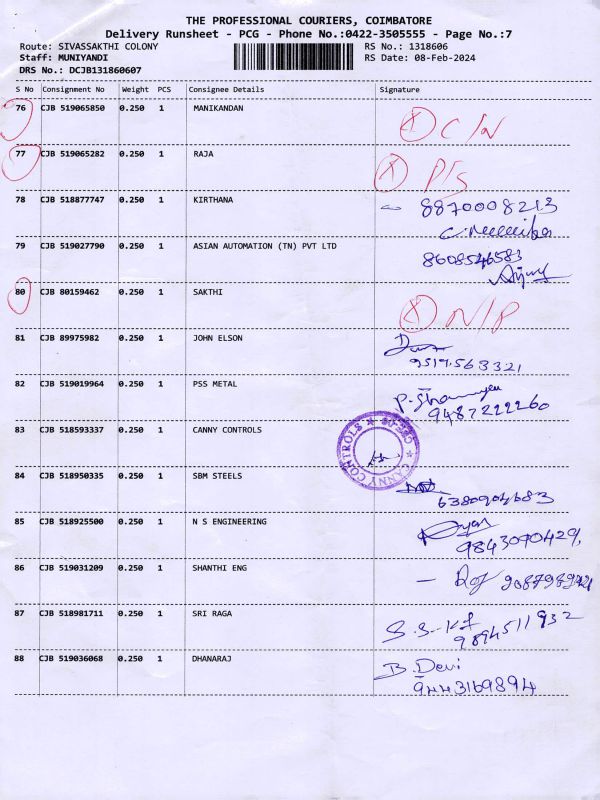 THE PROFESSIONAL COURIERS, COIMBATORE
Delivery Runsheet - PCG - Phone No.:0422-3505555 - Page No.:7
Route: SIVASSAKTHI COLONY RS No.: 1318606
Staff: MUNIYANDI RS Date: 08-Feb-2024
DRS No.: DCJB131860607
S No Consignment No Weight PCS Consignee Details Signature
76 CJB 519065850 0.250 1 MANIKANDAN
X C/N
77 CJB 519065282 0.250 1 RAJA
X P/S
78 CJB 518877747 0.250 1 KIRTHANA
8870008213
79 CJB 519027790 0.250 1 ASIAN AUTOMATION (TN) PVT LTD
8608546583
80 CJB 80159462 0.250 1 SAKTHI
X N/P
81 CJB 89975982 0.250 1 JOHN ELSON
9519563321
82 CJB 519019964 0.250 1 PSS METAL
9487222260
83 CJB 518593337 0.250 1 CANNY CONTROLS
CANNY CONTROLS
84 CJB 518950335 0.250 1 SBM STEELS
6380904683
85 CJB 518925500 0.250 1 N S ENGINEERING
9843090429
86 CJB 519031209 0.250 1 SHANTHI ENG
87 CJB 518981711 0.250 1 SRI RAGA
9894511932
88 CJB 519036068 0.250 1 DHANARAJ
B. Devi
9443169894